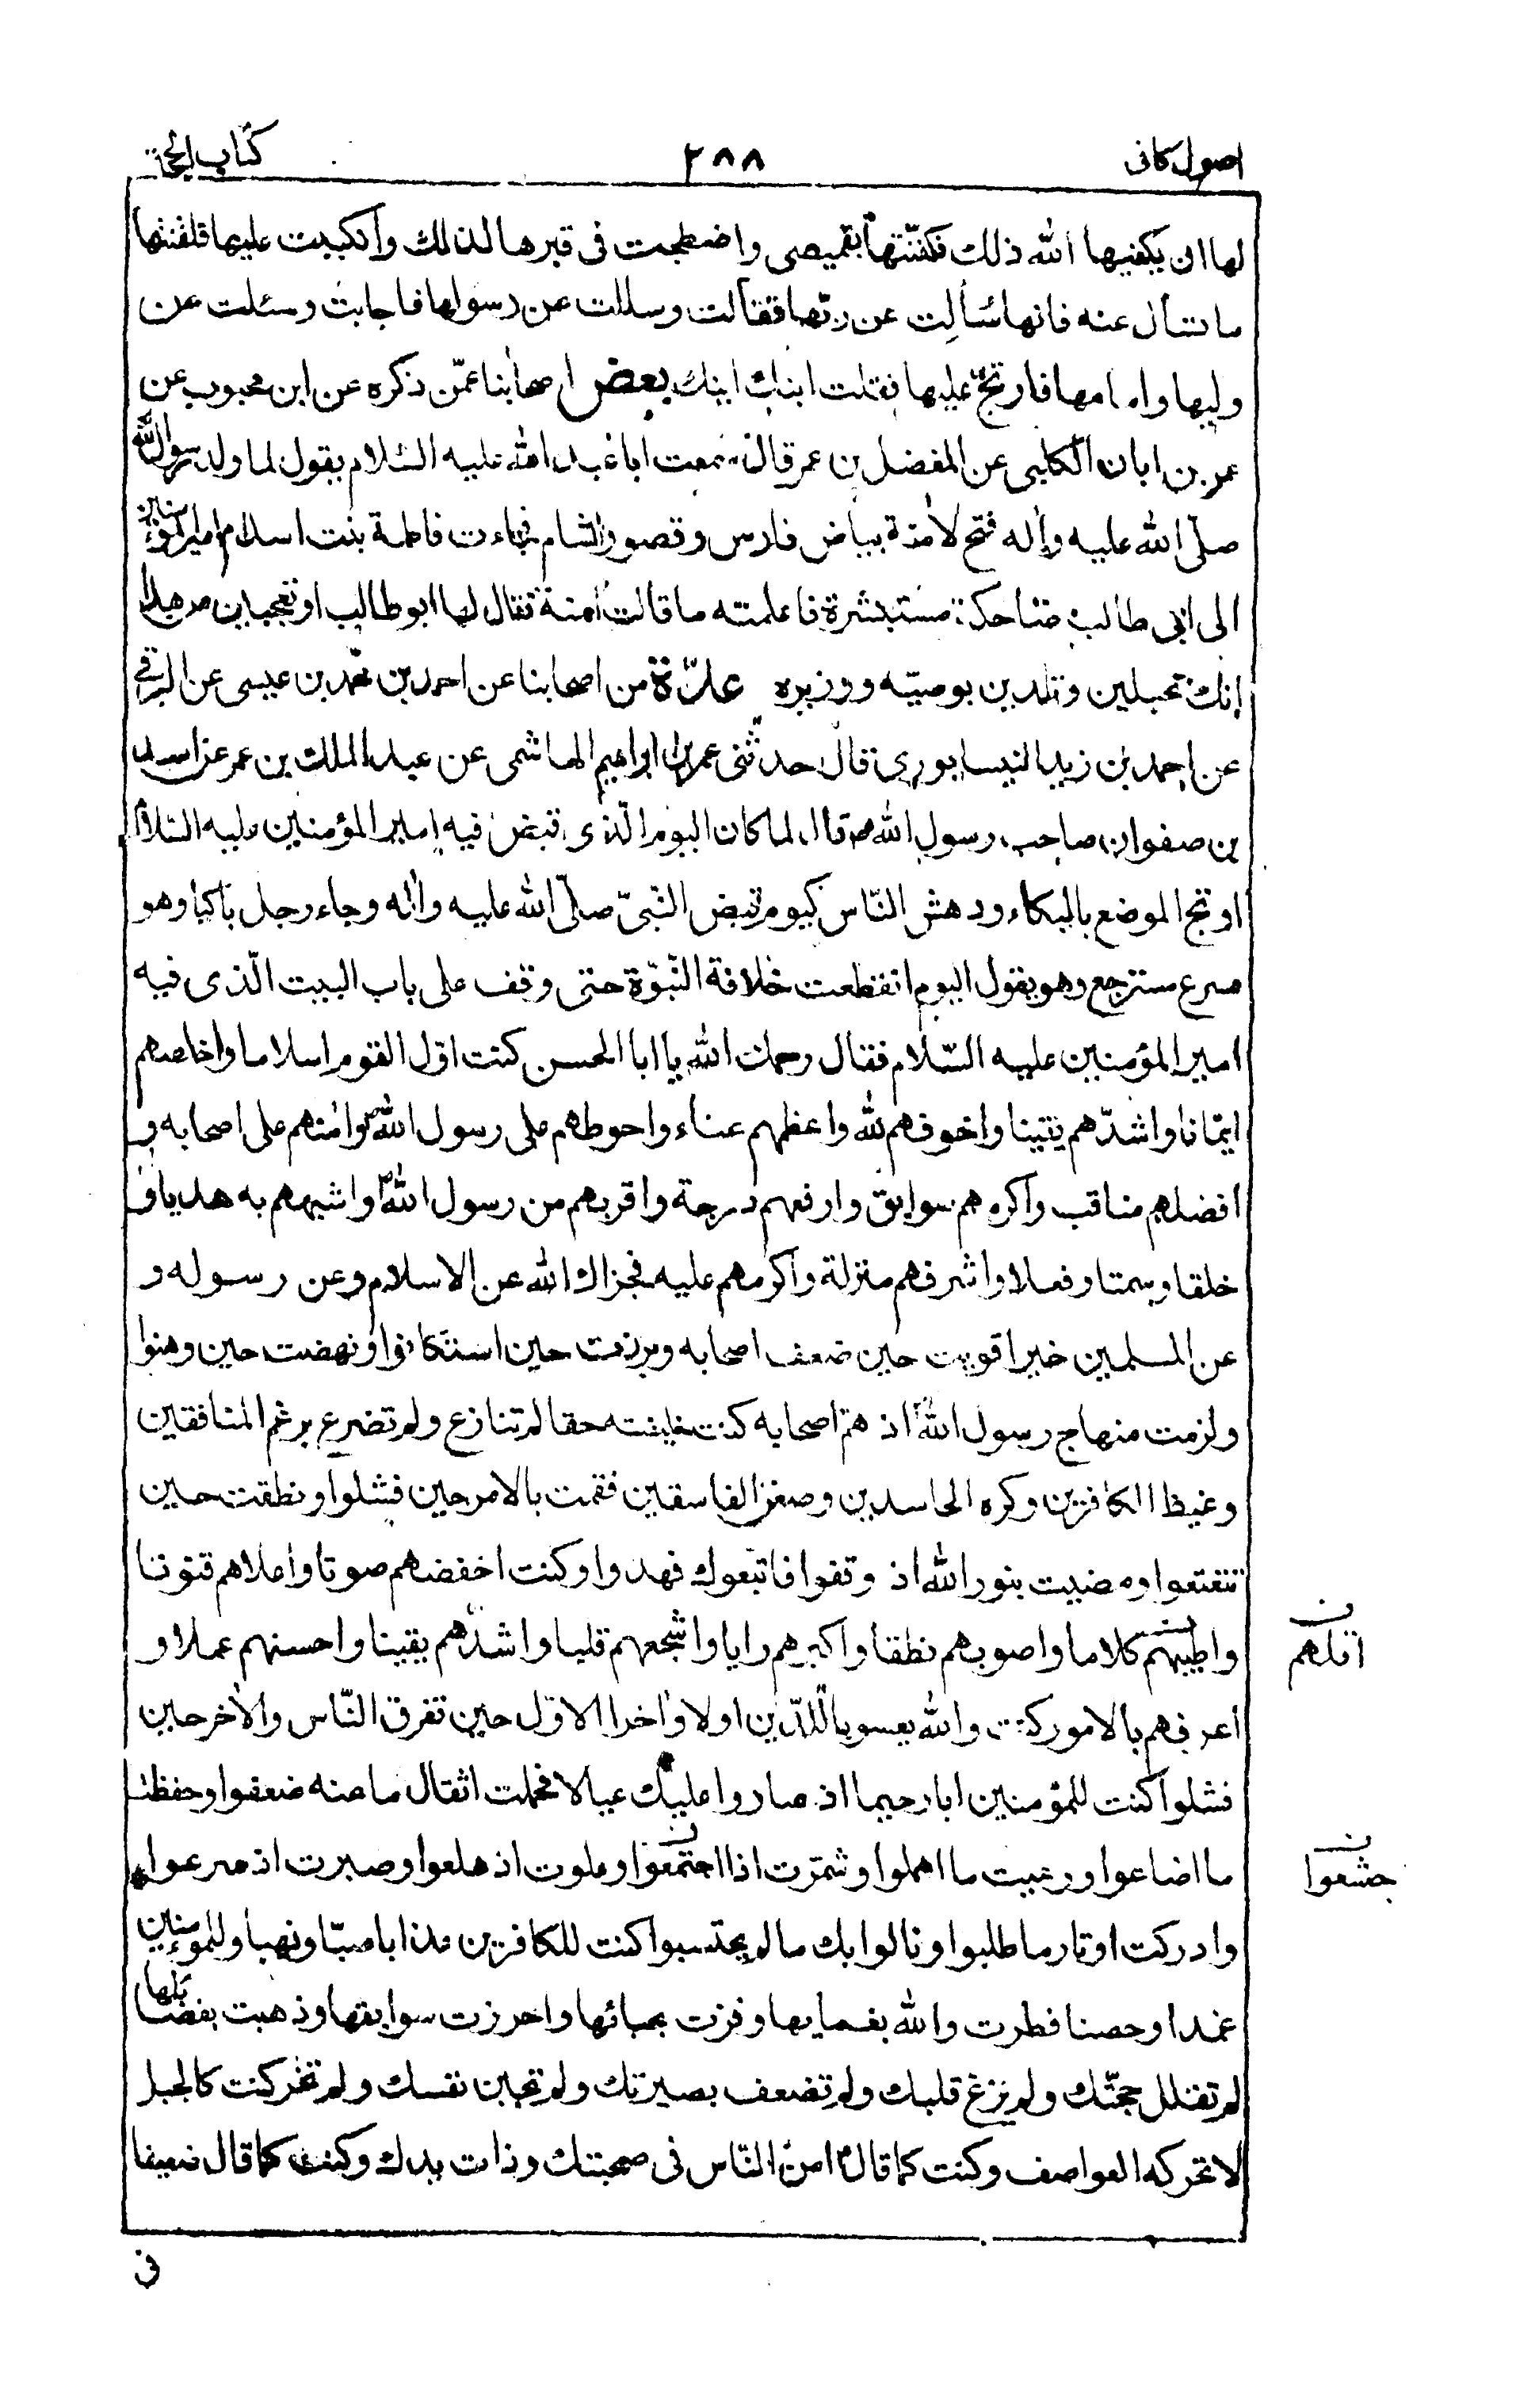 اصول كافى
٢٨٨
كتاب الحجة
لها ان يكفيها الله ذلك فكفّنتها بقميصى واضطجعت فى قبرها لذلك وانكببت عليها فلقنتها
ما تسأل عنه فانها سُألت عن ربّها فقالت وسئلت عن رسولها فاجابت وسئلت عن
وليها وامامها فارتجّ عليها فقلت ابنك ابنك بعض اصحابنا عمّن ذكره عن ابن محبوب عن
عمر بن ابان الكلبى عن المفضل بن عمر قال سمعت ابا عبد الله عليه السّلام يقول لما ولد رسول الله
صلّى الله عليه واٰله فتح لاٰمنة بياض فارس وقصور الشام فجاءت فاطمة بنت اسد ام امير المؤمنين
الى ابى طالب ضاحكة مستبشرة فاعلمته ما قالت اٰمنة فقال لها ابو طالب او تعجبين من هذا
إنك تحبلين وتلدين بوصيّه ووزيره عدّة من اصحابنا عن احمد بن محمد بن عيسى عن البرقى
عن احمد بن زيد النيسابورى قال حدّثنى عمر بن ابراهيم الهاشمى عن عبد الملك بن عمر عن اسيد
بن صفوان صاحب رسول الله ص قال لما كان اليوم الّذى قبض فيه امير المؤمنين عليه السّلام
ارتج الموضع بالبكاء ودهش النّاس كيوم قبض النّبىّ صلّى الله عليه واٰله وجاء رجل باكيا وهو
مسرع مسترجع وهو يقول اليوم انقطعت خلافة النّبوّة حتى وقف على باب البيت الّذى فيه
امير المؤمنين عليه السّلام فقال رحمك الله يا ابا الحسن كنت اوّل القوم اسلاما واخلصهم
ايمانا واشدّهم يقينا واخوفهم لله واعظمهم عناء واحوطهم على رسول الله ص واٰمنهم على اصحابه و
افضلهم مناقب واكرمهم سوابق وارفعهم درجة واقربهم من رسول الله ص واشبههم به هديا و
خلقا وسمتا وفعلا واشرفهم منزلة واكرمهم عليه فجزاك الله عن الاسلام وعن رسوله و
عن المسلمين خيرا قويت حين ضعف اصحابه وبرزت حين استكانوا ونهضت حين وهنوا
ولزمت منهاج رسول الله ص اذ همّ اصحابه كنت خليفته حقا لم تنازع ولم تضرع برغم المنافقين
وغيظ الكافرين وكره الحاسدين وصغر الفاسقين فقمت بالامر حين فشلوا ونطقت حين
تتعتعوا ومضيت بنور الله اذ وقفوا فاتّبعوك فهدوا وكنت اخفضهم صوتا واعلاهم قنوتا
واطيبهم كلاما واصوبهم نطقا واكبرهم رايا واشجعهم قلبا واشدّهم يقينا واحسنهم عملا و
ن اقلهم
اعرفهم بالامور كنت والله يعسوبا للدّين اولا واٰخرا الاوّل حين تفرق النّاس والاٰخر حين
فشلوا كنت للمؤمنين ابا رحيما اذ صاروا عليك عيالا فحملت اثقال ما عنه ضعفوا وحفظت
ما اضاعوا ورعيت ما اهملوا وشمّرت اذا اجتمعوا وعلوت اذ هلعوا وصبرت اذ اسرعوا
ن جشعوا
وادركت اوتار ما طلبوا ونالوا بك ما لم يحتسبوا كنت للكافرين عذابا صبّا ونهبا وللمؤمنين
عمدا وحصنا فطرت والله بنعمايها وفزت بحبائها واحرزت سوابقها وذهبت بفضائلها
لم تفلل حجّتك ولم يزغ قلبك ولم تضعف بصيرتك ولم تجبن نفسك ولم تخر كنت كالجبل
لا تحركه العواصف وكنت كما قال امن النّاس فى صحبتك وذات يدك وكنت كما قال ضعيفا
فى